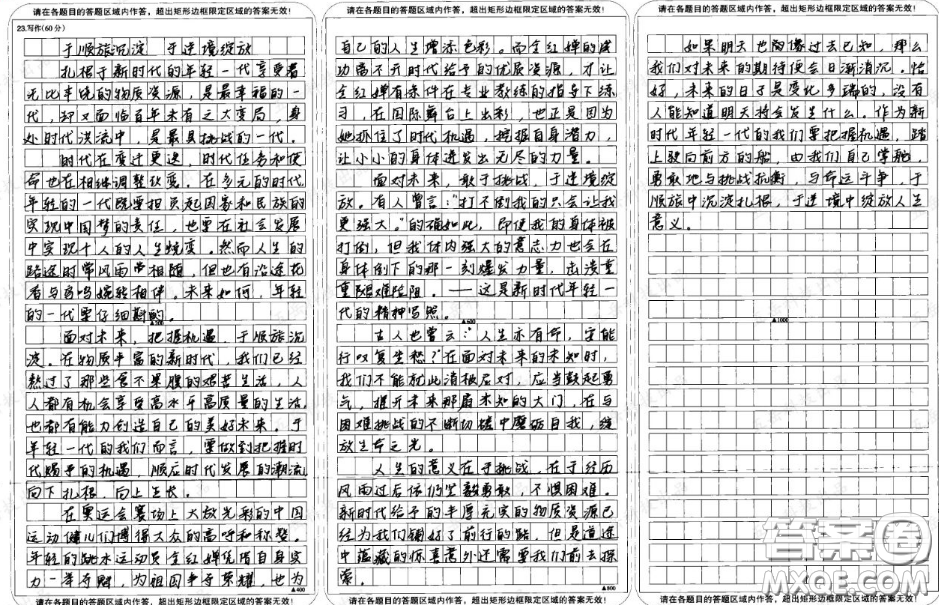 请在各题目的答题区域内作答，超出矩形边框限定区域的答案无效！
23.写作(60分)
于顺旅沉淀 于逆境绽放
扎根于新时代的年轻一代享受着
无比丰饶的物质资源，是最幸福的一
代，却又面临百年未有之大变局，身
处时代洪流中，是最具挑战的一代。
时代在变迁更迭，时代任务和使
命也在相继调整欤变。在多元的时代
年轻的一代既要担负起国家和民族的
实现中国梦的责任，也要在社会发展
中实现个人的人生蜕变。然而人生的
路途时常风雨常相随，但也有沿途花
香与鸟鸣婉转相伴。未来如何，年轻
的一代要仔细斟酌。
面对未来，把握机遇，于顺旅沉
淀。在物质丰富的新时代，我们已经
熬过了那些食不果腹的艰苦生活，人
人都有机会享受高水平高质量的生活
也都有能力创造自己的美好未来。于
年轻一代的我们而言，要做到把握时
代赐予的机遇，顺应时代发展的潮流
向下扎根，向上生长。
在奥运会赛场上大放光彩的中国
运动健儿们博得大众的高呼和称赞。
年轻的跳水运动员全红婵凭借自身实
力一举夺牌，为祖国争予荣耀，也为
▲400
请在各题目的答题区域内作答，超出矩形边框限定区域的答案无效！
请在各题目的答题区域内作答，超出矩形边框限定区域的答案无效！
自己的人生增添色彩。而全红婵的成
功离不开时代给予的优质资源，才让
全红婵有条件在专业教练的指导下练
习，在国际舞台上出彩，也正是因为
她抓住了时代机遇，挖掘自身潜力，
让小小的身体迸发出无尽的力量。
面对未来，敢于挑战，于逆境绽
放。有人曾言：“打不倒我的只会让我
更强大。”的确如此，即使我的身体被
打倒，但我体内强大的意志力也会在
身体倒下的那一刻爆发力量，击溃重
重艰难险阻。——这是新时代年轻一
代的精神写照。
▲600
古人也曾云：“人生亦有命，安能
行叹复坐愁？”在面对未来的未知时，
我们不能就此消极应对，应当鼓起勇
气，推开未来那扇未知的大门，在与
困难挑战的不断切磋中磨砺自我，绽
放生命之光。
人生的意义在于挑战，在于经历
风雨过后依仍坚毅勇敢，不惧困难。
新时代给予的丰厚充实的物质资源已
经为我们铺好了前行的路，但是道途
中蕴藏的惊喜意外还需要我们前去探
索。
▲800
请在各题目的答题区域内作答，超出矩形边框限定区域的答案无效！
请在各题目的答题区域内作答，超出矩形边框限定区域的答案无效！
如果明天也像过去已知，那么
我们对未来的期待便会日渐消沉。恰
好，未来的日子是变化多端的，没有
人能知道明天将会发生什么。作为新
时代年轻一代的我们要把握机遇，踏
上驶向前方的船，由我们自己掌舵，
勇敢地与挑战抗衡，与命运斗争，于
顺旅中沉淀扎根，于逆境中绽放人生
意义。
▲1000
答案圈
MXQE.COM
请在各题目的答题区域内作答，超出矩形边框限定区域的答案无效！